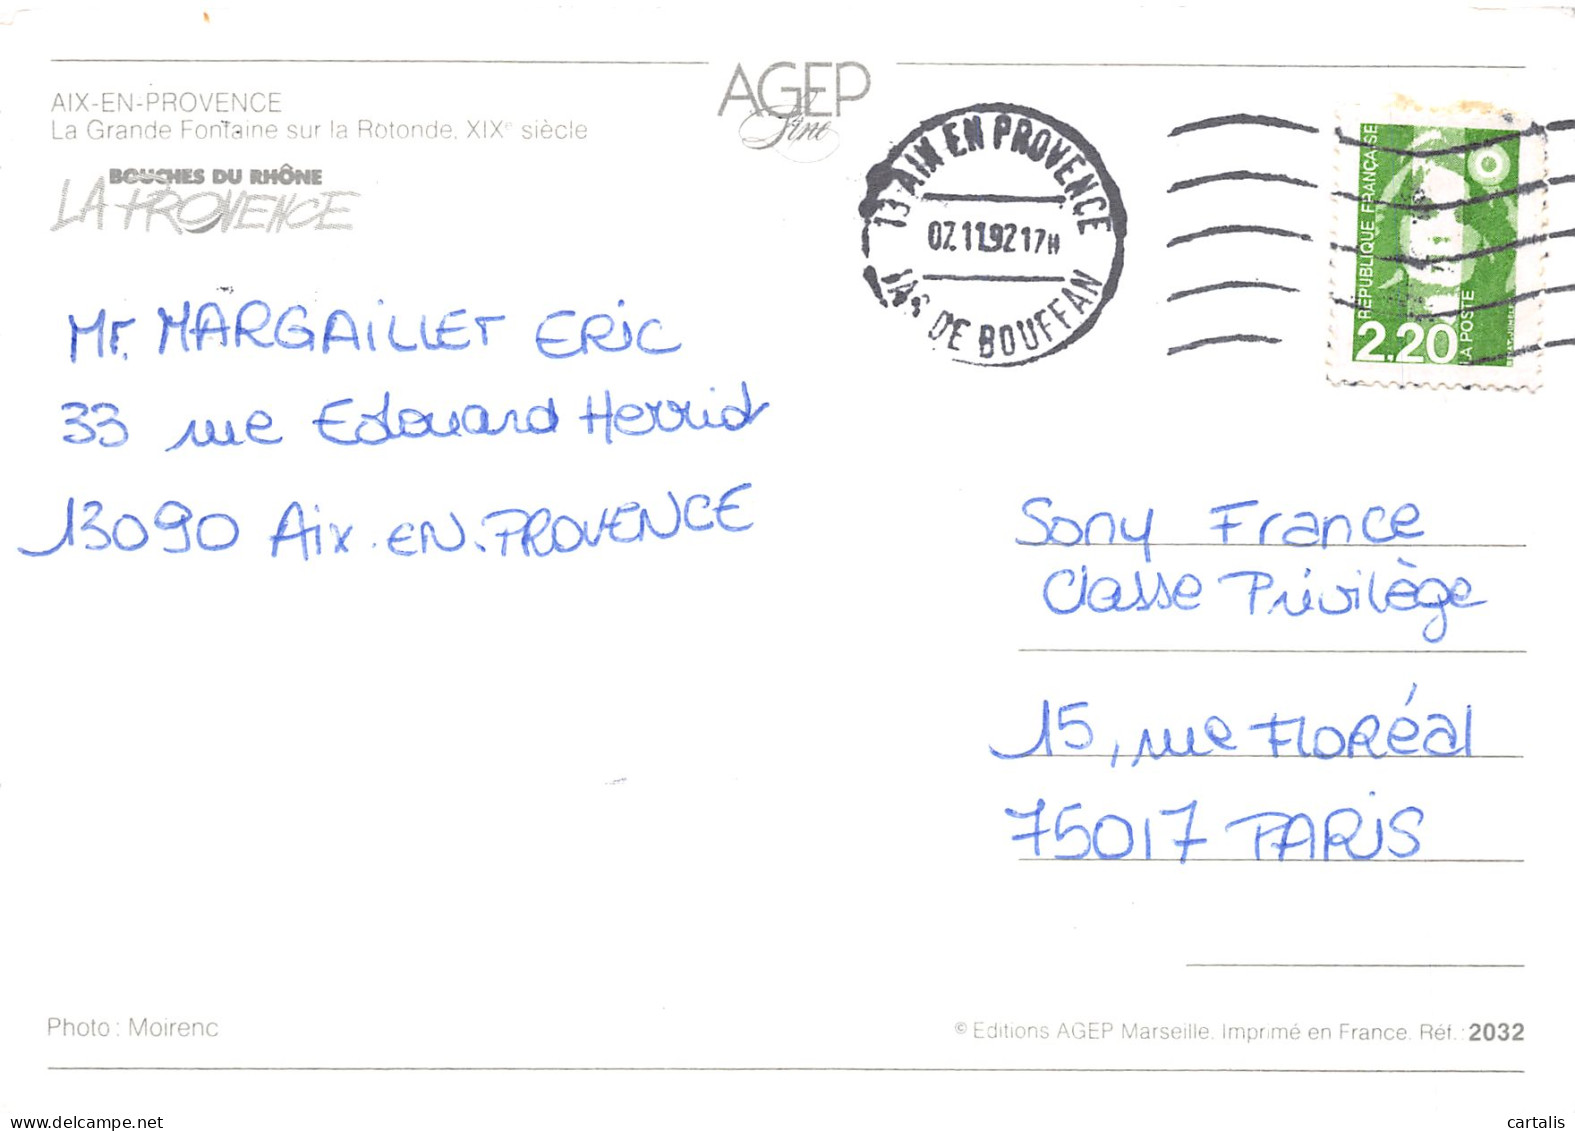 AIX-EN-PROVENCE
La Grande Fontaine sur la Rotonde. XIXe siècle
BOUCHES DU RHÔNE
LA PROVENCE
AGEP
Fine
13 AIX EN PROVENCE
07.11.92 17H
JAS DE BOUFFAN
RÉPUBLIQUE FRANÇAISE
2.20
LA POSTE
Mr. MARGAILLET ERIC
33 rue Edouard Herriot
13090 Aix.EN.PROVENCE
Sony France
Classe Privilège
15, rue FLORéal
75017 PARIS
Photo : Moirenc
© Editions AGEP Marseille. Imprimé en France. Réf. : 2032
cartalis